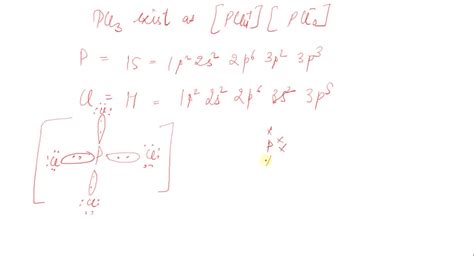 PCl3 exist as [PCl4+] [PCl6-]
P = 15 = 1p² 2s² 2p⁶ 3p² 3p³
Cl = H = 1p² 2s² 2p⁶ 3s² 3p⁵
Cl
Cl P Cl
Cl
P